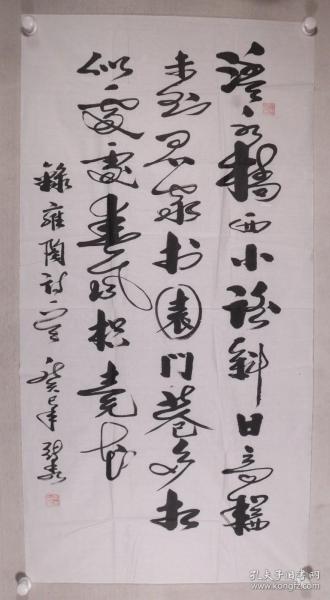 澧水橋西小路斜日高猶
未到君家村園門巷多相
似處處春風枳壳花
錄雍陶詩一首 癸巳年
孔夫子旧书网
www.kongfz.com